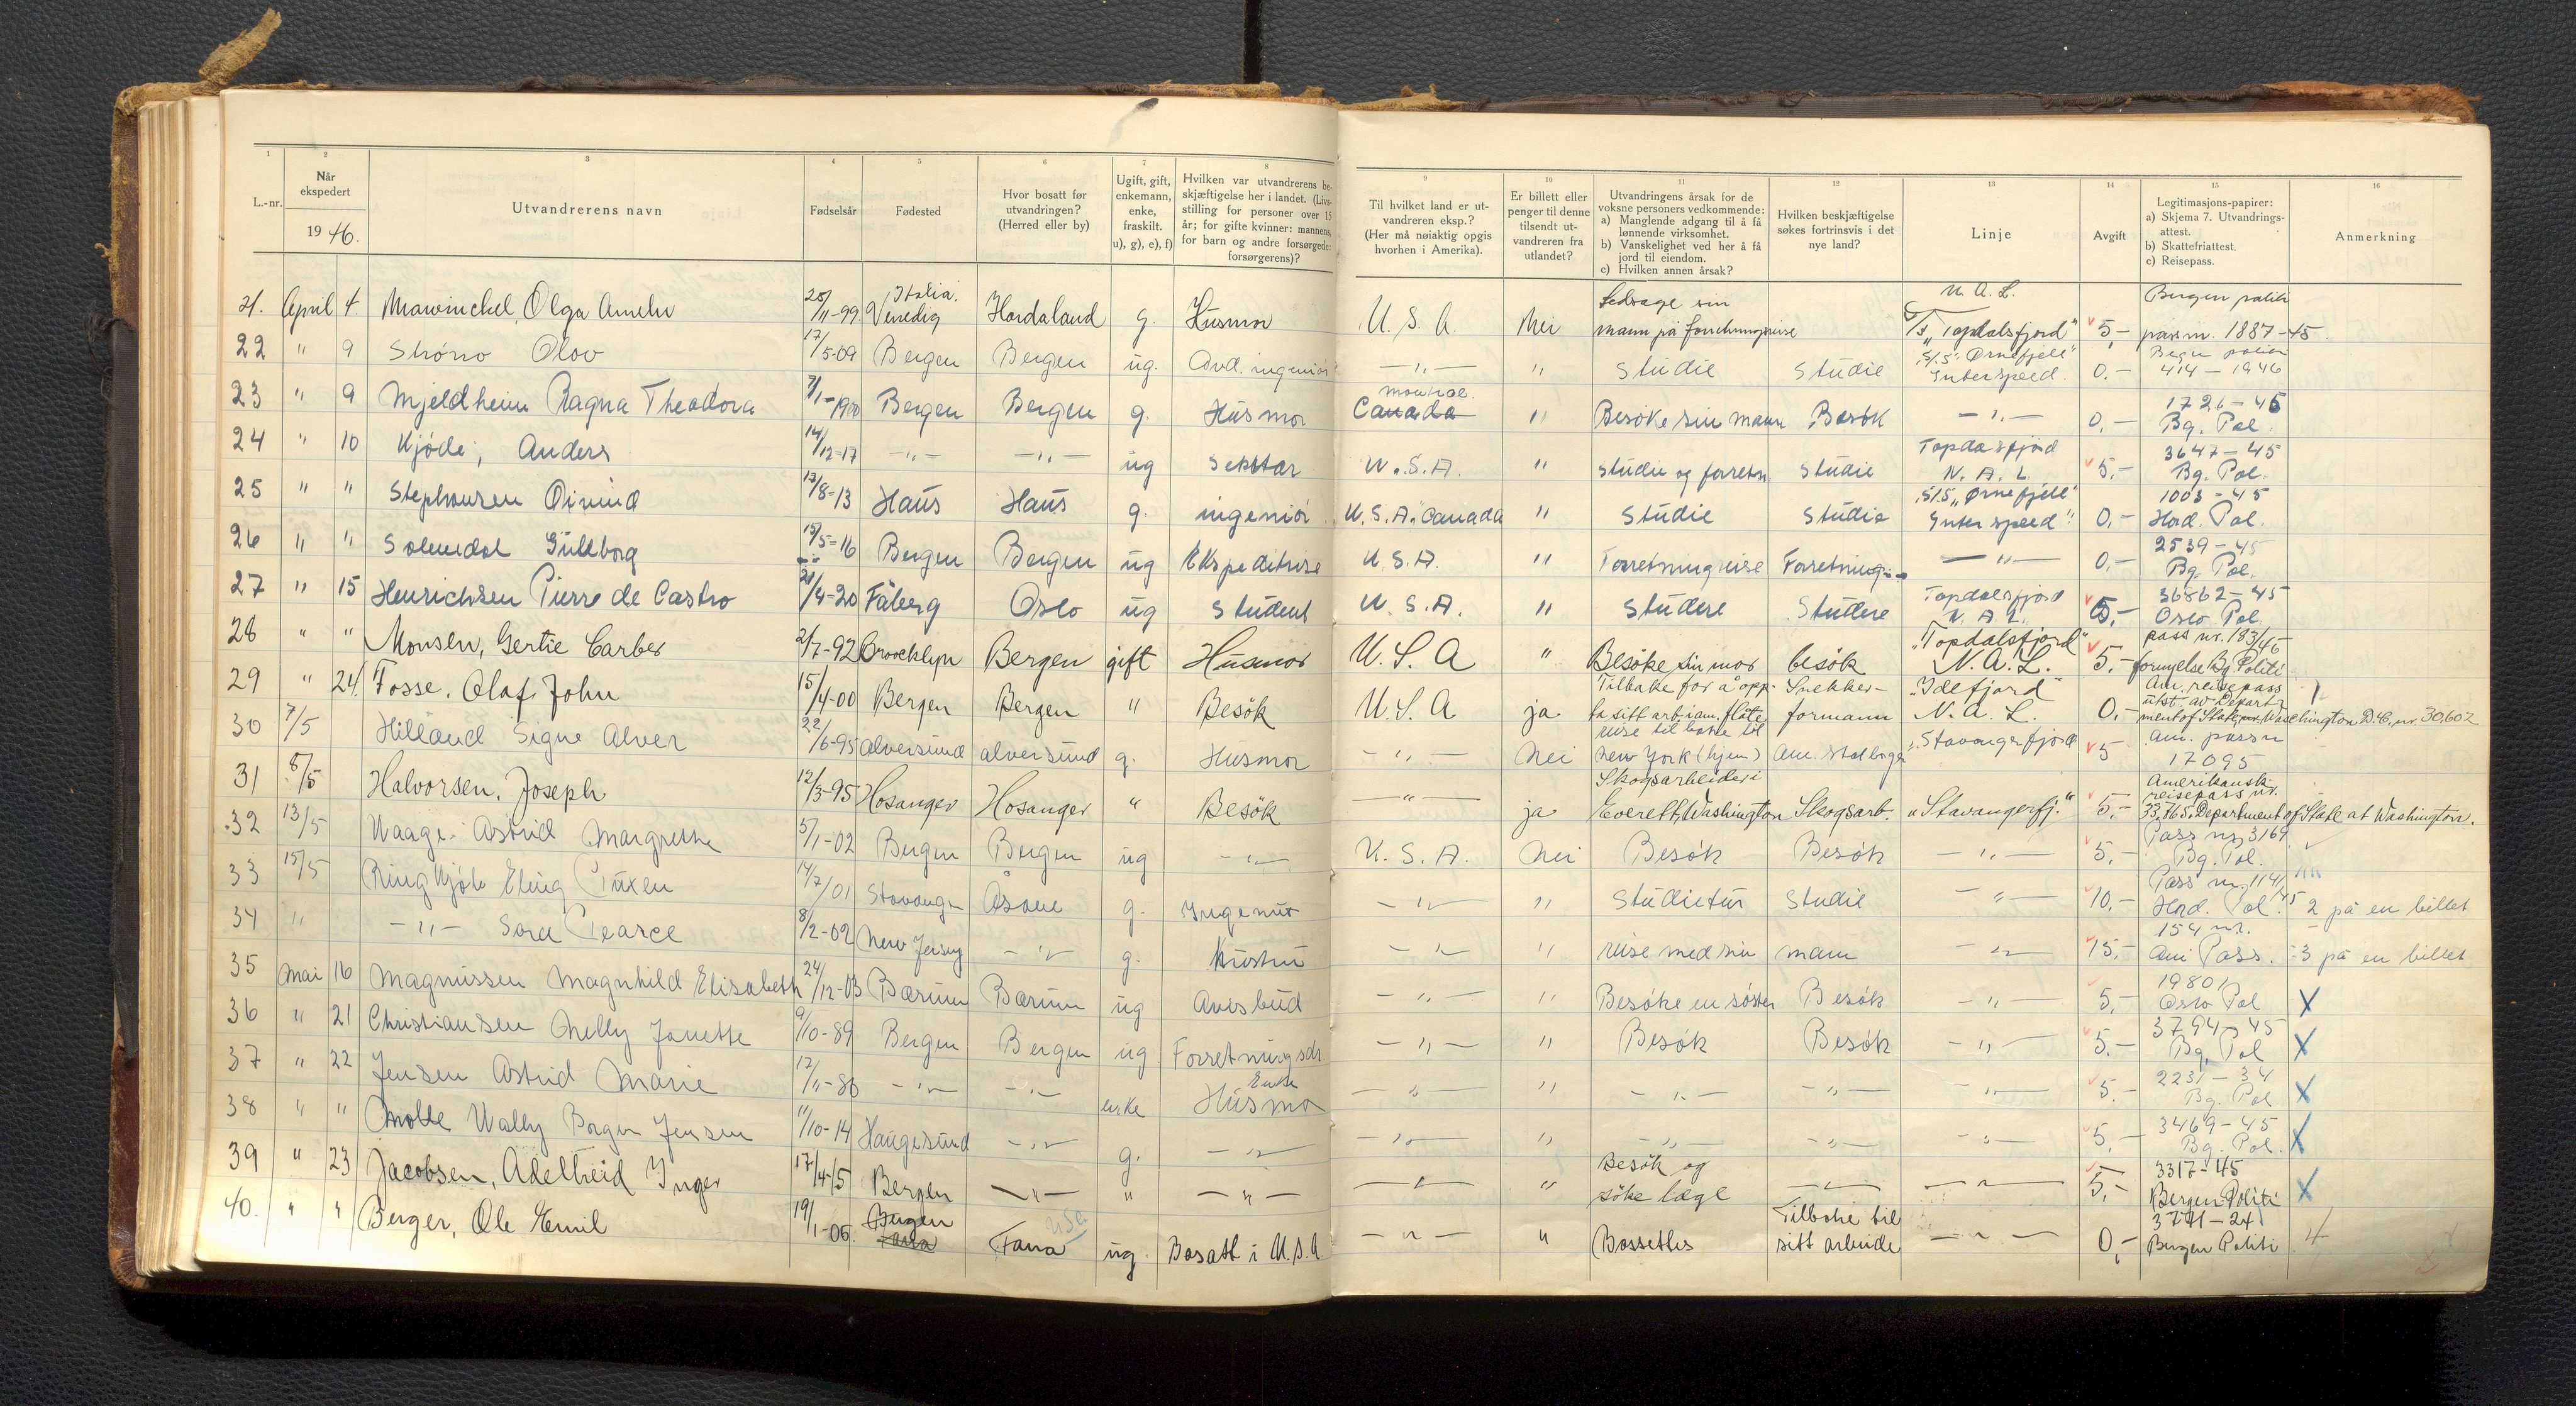 1 2 3 4 5 6 7 8 9 10 11 12 13 14 15 16
L.-nr. | Når ekspedert 1946. | Utvandrerens navn | Fødselsår | Fødested | Hvor bosatt før utvandringen? (Herred eller by) | Ugift, gift, enkemann, enke, fraskilt. u), g), e), f) | Hvilken var utvandrerens beskjæftigelse her i landet. (Livsstilling for personer over 15 år; for gifte kvinner: mannens, for barn og andre forsørgede: forsørgerens)? | Til hvilket land er utvandreren eksp.? (Her må nøiaktig opgis hvorhen i Amerika). | Er billett eller penger til denne tilsendt utvandreren fra utlandet? | Utvandringens årsak for de voksne personers vedkommende: a) Manglende adgang til å få lønnende virksomhet. b) Vanskelighet ved her å få jord til eiendom. c) Hvilken annen årsak? | Hvilken beskjæftigelse søkes fortrinsvis i det nye land? | Linje | Avgift | Legitimasjons-papirer: a) Skjema 7. Utvandringsattest. b) Skattefriattest. c) Reisepass. | Anmerkning
21. April 4. Olga 28/11-99 Italia. Venedig Hordaland g. Husmor U.S.A. Nei Ledsage sin mann på N.A.L. "Topdalsfjord" 5,- Bergen politi 1887-45.
22 " 9 Olov 17/5-09 Bergen Bergen ug. Avd. ingeniör -"- " Studie Studie S/S "Ørnefjell" Interspeed. 0.- 414-1946
23 " 9 Mjeldheim Ragna Theodora 7/1-1900 Bergen Bergen g. Husmor Canada " Besøke sin mann Besøk -"- 0,- 1726-45 Bg. Pol.
24 " 10 Kjöde, Anders 14/12-17 -"- -"- ug U.S.A. " Studie og Studie N.A.L. 5,- 3647-45 Bg. Pol.
25 " " Stephansen Öivind 13/8-13 Haus Haus g. ingeniör U.S.A. Canada " Studie Studie S/S "Ørnefjell" Interspeed" 0,- 1003-45 Hord. Pol.
26 " " 15/5-16 Bergen Bergen ug Ekspeditrise U.S.A. " Forretningreise Forretning -"- 0,- 2539-45 Bg. Pol.
27 " 15 Henrichsen Pierre de Castro 21/4-20 Fåberg Oslo ug Student U.S.A. " Studere Studere Topdalsfjord N.A.L. 5,- 36862-45 Oslo Pol.
28 " " Monsen, Gertie Carber 2/7-92 Broocklyn Bergen gift Husmor U.S.A " Besøke sin mor besøk "Topdalsfjord" N.A.L. 5,- pass nr. 183/46 fornyelse Bg. Politi
29 " 24. Fosse, Olaf John 15/4-00 Bergen Bergen " Besøk U.S.A ja Tilbake for å opp- ta sitt arb. i am. flåte Snekker- formann "Idefjord" N.A.L. 0,- Am. reisepass utst. av Depart- ment of State, Washington D.C., nr. 30602
30 7/5 Hilland Signe Alver 22/6-95 Alversund alversund g. Husmor -"- Nei reise tilbake til New York (hjem) Am. "Stavangerfjord 5 Am. pass n 17095
31 8/5 Halvorsen, Joseph 12/3-95 Hosanger Hosanger " Besøk -"- ja Skogsarbeider i Everett, Washington Skogsarb. "Stavangerfj." 5,- Amerikansk reisepass nr. 33765. Department of State at Washington.
32 13/5 Waage Astrid Margrethe 5/1-02 Bergen Bergen ug -"- U.S.A. Nei Besøk Besøk -"- 5,- Pass nr. 3169 Bg. Pol.
33 15/5 14/7/01 Åsane g. Ingeniør -"- " Studietur Studie -"- 10,- Pass nr. 1141 45 Hord. Pol. 2 på en billet
34 " -"- Sara Pearce 8/2-02 New Jersey -"- g. -"- " reise med sin mann -"- 15,- 154 nr. Am Pass. 3 på en billet
35 Mai 16 Magnussen Magnhild Elisabeth 24/12-03 Bærum Bærum ug Avisbud -"- " Besøke en søster Besøk -"- 5,- 19801 Oslo Pol X
36 " 21 Christiansen Nelly Janette 9/10-89 Bergen Bergen ug Forretningsdr -"- " Besøk Besøk -"- 5.- 3794-45 Bg. Pol X
37 " 22 Jensen Astrid Marie 17/11-86 -"- -"- enke Enke Husmo -"- " -"- -"- -"- 5.- 2231-34 Bg. Pol X
38 " " Wally Borgen Jensen 11/10-14 Haugesund -"- g. -"- -"- " -"- -"- -"- 5,- 3469-45 Bg. Pol. X
39 " 23 Jacobsen, Adelheid Inger 17/4-15 Bergen -"- " -"- -"- " Besøk og söke læge -"- -"- 5,- 3317-45 Bergen Politi X
40. " " Berger, Ole Emil 19/1-06. Bergen Fana USA Fana ug. Bosatt i U.S.A. -"- " Bossettes Tilbake til sitt arbeide -"- 0,- 3771-24 Bergen Politi